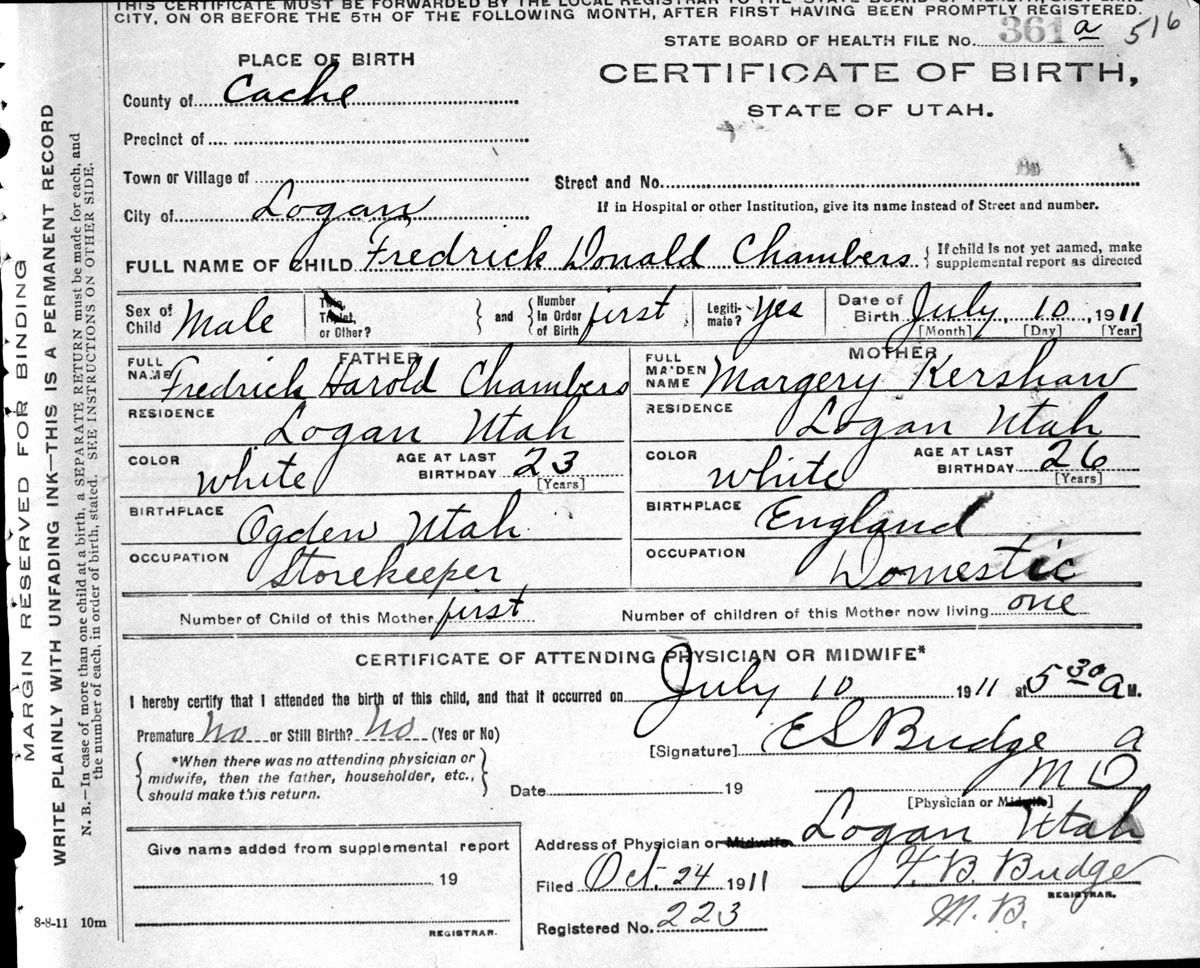 THIS CERTIFICATE MUST BE FORWARDED BY THE LOCAL REGISTRAR TO THE STATE BOARD OF HEALTH, SALT LAKE
CITY, ON OR BEFORE THE 5TH OF THE FOLLOWING MONTH, AFTER FIRST HAVING BEEN PROMPTLY REGISTERED.
STATE BOARD OF HEALTH FILE No. 361 a 516
PLACE OF BIRTH
CERTIFICATE OF BIRTH,
STATE OF UTAH.
County of Cache
Precinct of
Town or Village of
Street and No.
City of Logan
If in Hospital or other Institution, give its name instead of Street and number.
FULL NAME OF CHILD Fredrick Donald Chambers { If child is not yet named, make supplemental report as directed
Sex of Child Male
Twin, Triplet, or Other? } and { Number In Order of Birth first
Legitimate? Yes
Date of Birth July, 10, 1911
[Month] [Day] [Year]
FATHER
FULL NAME Fredrick Harold Chambers
RESIDENCE
Logan Utah
COLOR white AGE AT LAST BIRTHDAY 23
[Years]
BIRTHPLACE
Ogden Utah
OCCUPATION
Storekeeper
MOTHER
FULL MAIDEN NAME Margery Kershaw
RESIDENCE
Logan Utah
COLOR white AGE AT LAST BIRTHDAY 26
[Years]
BIRTHPLACE
England
OCCUPATION
Domestic
Number of Child of this Mother first Number of children of this Mother now living one
CERTIFICATE OF ATTENDING PHYSICIAN OR MIDWIFE*
I hereby certify that I attended the birth of this child, and that it occurred on July 10 1911 at 5 30 a M.
Premature No or Still Birth? No (Yes or No)
[Signature] E S Budge a
M D
*When there was no attending physician or
midwife, then the father, householder, etc.,
should make this return.
Date 19
[Physician or Midwife]
Address of Physician or Midwife Logan Utah
Give name added from supplemental report
19
REGISTRAR.
Filed Oct. 24 1911 H. B. Budge
REGISTRAR.
M. B.
Registered No. 223
8-8-11 10m
MARGIN RESERVED FOR BINDING
WRITE PLAINLY WITH UNFADING INK—THIS IS A PERMANENT RECORD
N. B.—In case of more than one child at a birth, a SEPARATE RETURN must be made for each, and
the number of each, in order of birth, stated. SEE INSTRUCTIONS ON OTHER SIDE.